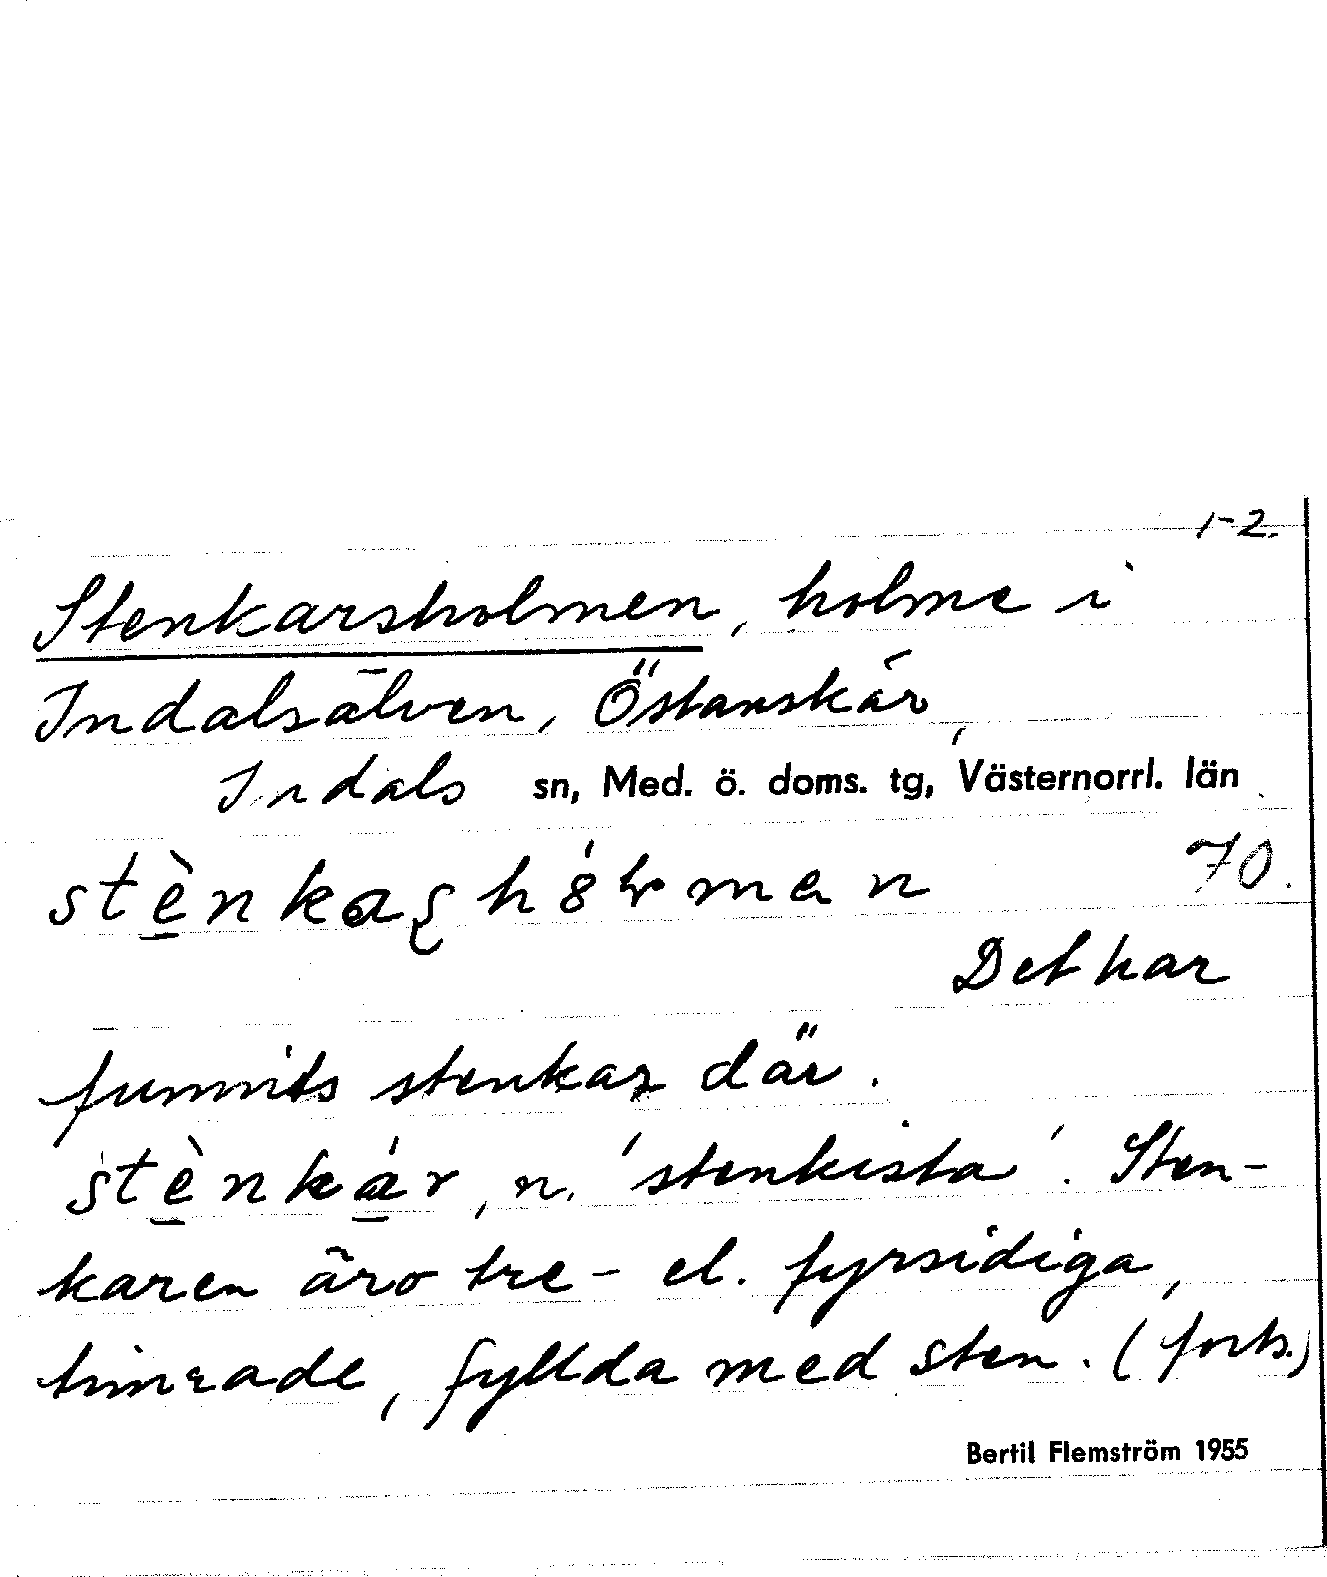 1-2.
Stenkarsholmen, holme i
Indalsälven, Östanskär,
Indals sn, Med. ö. doms. tg, Västernorrl. län
70.
Det har
funnits stenkar där.
stènkár, n. 'stenkista'. Sten-
karen äro tre- el. fyrsidiga,
timrade, fyllda med sten. (forts.)
Bertil Flemström 1955